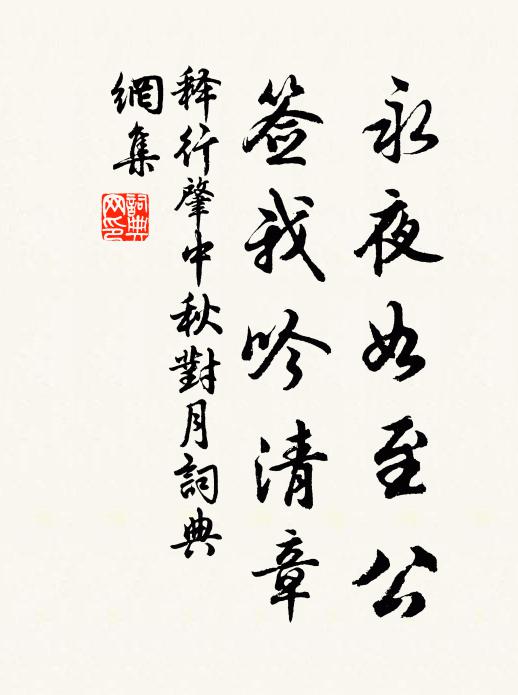 永夜如至公
签我吟清章
释行肇中秋對月詞典
網集
詞典
网印